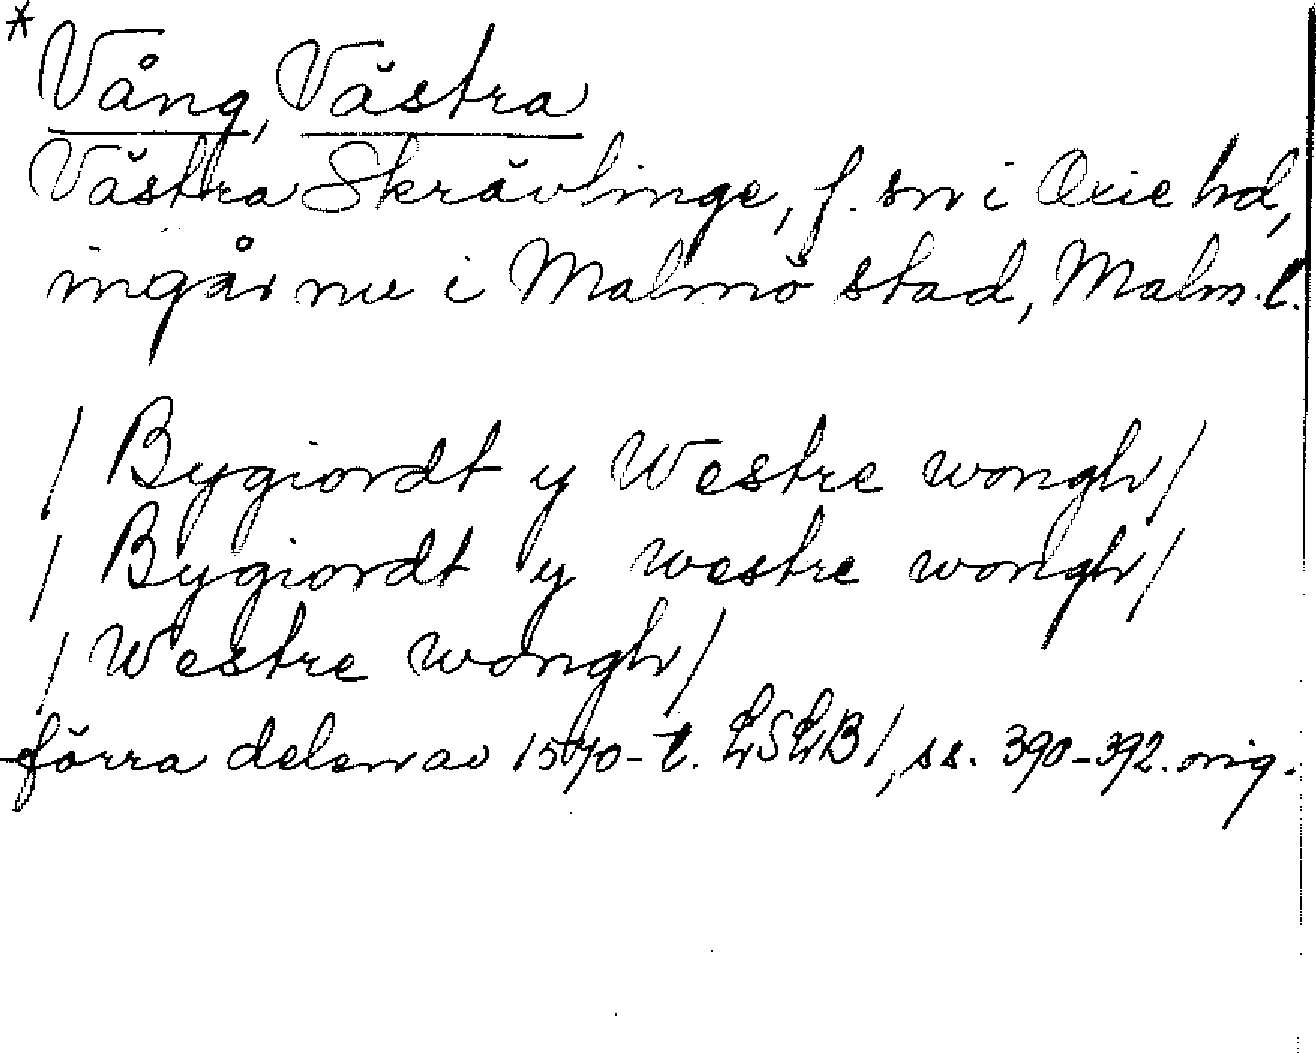 * Vång, Västra
Västra Skrävlinge, f. sn i Oxie hd,
ingår nu i Malmö stad, Malm. l.
/ Bygiordt y Westre wongh /
/ Bygiordt y westre wongh /
/ Westre wongh /
förra delen av 1570-t. LSLB 1, ss. 390-392. orig.